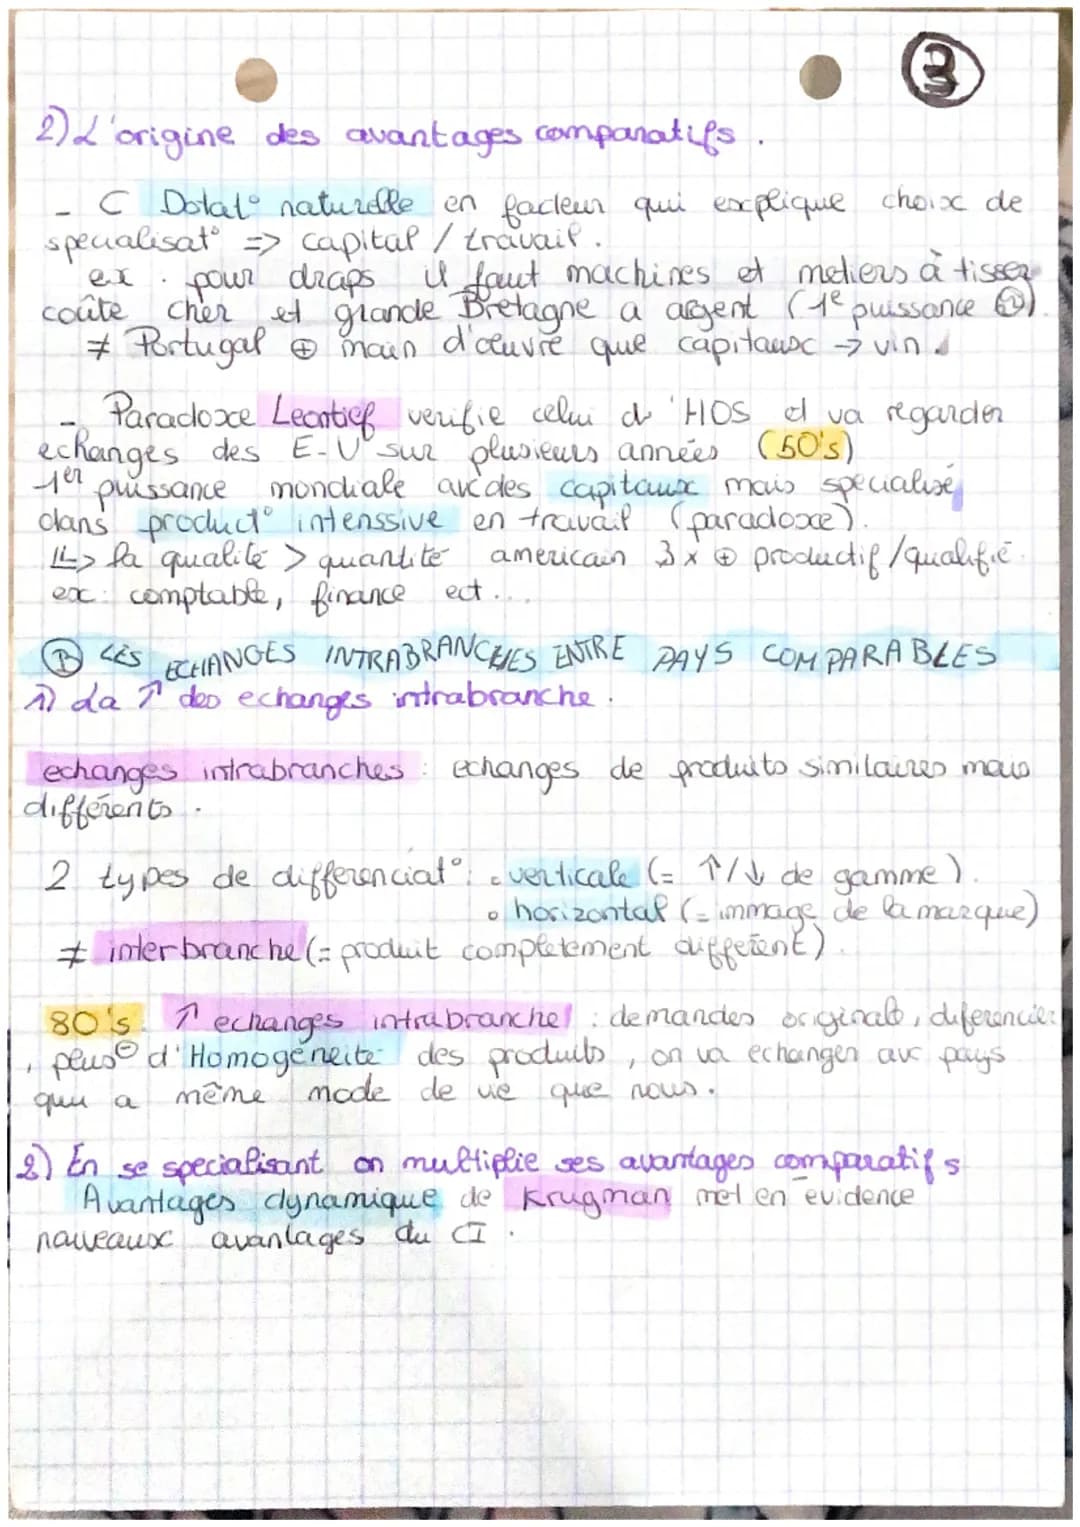 3
2) L'origine des avantages comparatifs.
- C Dotat° naturelle en facteur qui explique choix de
specialisat° => capital / travail.
ex. pour draps il faut machines et metiers à tisser
coûte cher et grande Bretagne a argent (1e puissance
≠ Portugal ⊕ main d'œuvre que capitaux → vin.
- Paradoxe Leontief verifie celui d'HOS et va regarder
echanges des E-U sur plusieurs années (50's)
1er puissance mondiale avc des capitaux mais specialisé
dans product° intenssive en travail (paradoxe).
↳> la qualité > quantité americain 3x ⊕ productif/qualifié
ex: comptable, finance ect...
B LES ECHANGES INTRABRANCHES ENTRE PAYS COMPARABLES
1) La ↑ des echanges intrabranche.
echanges intrabranches : echanges de produits similaires mais
différents.
2 types de differenciat° : verticale (= ↑/↓ de gamme).
horizontal (= immage de la marque)
≠ interbranche (= produit completement différent).
80's ↑ echanges intrabranche : demandes originale, diferencier
, plus ⊖ d'Homogéneité des produits, on va echanger avc pays
qui a même mode de vie que nous.
2) En se specialisant on multiplie ses avantages comparatifs
Avantages dynamique de Krugman met en évidence
nouveaux avantages du CI.